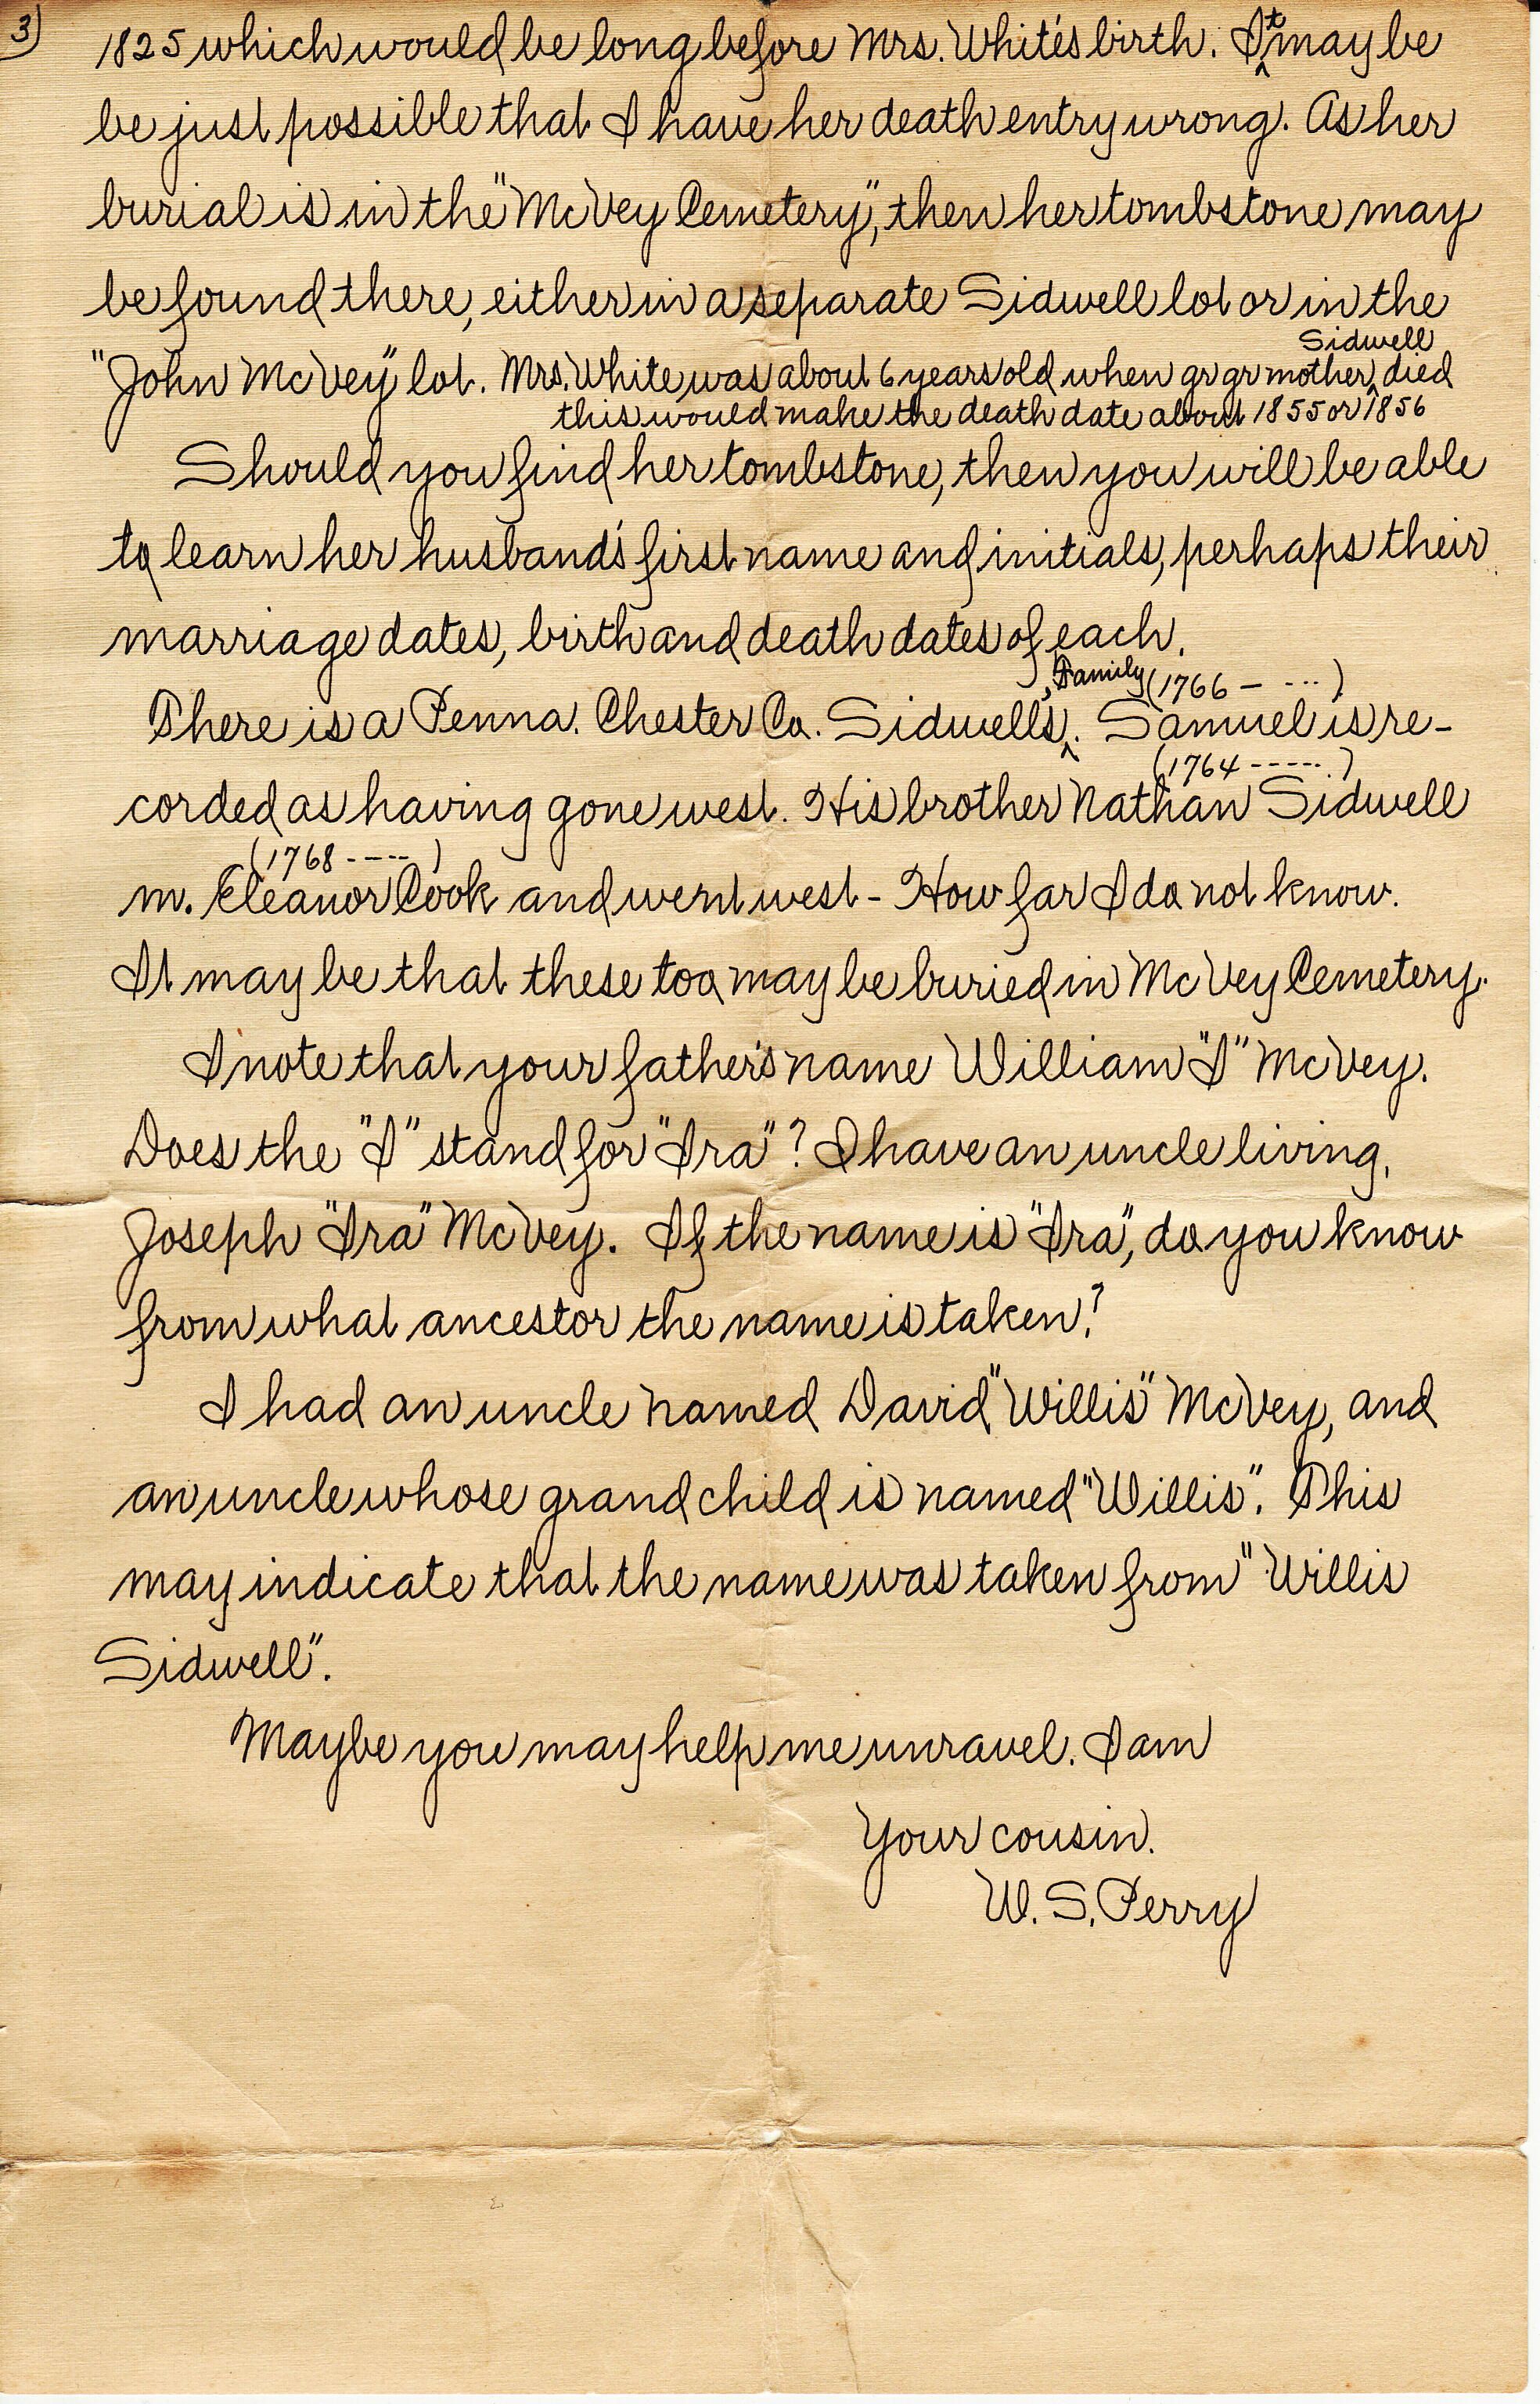 3)
1825 which would be long before Mrs. White's birth. It may be
be just possible that I have her death entry wrong. As her
burial is in the "McVey Cemetery", then her tombstone may
be found there, either in a separate Sidwell lot or in the
Sidwell
"John McVey" lot. Mrs. White was about 6 years old when gr gr mother ^ died
this would make the death date about 1855 or 1856
Should you find her tombstone, then you will be able
to learn her husband's first name and initials, perhaps their
marriage dates, birth and death dates of each.
Family (1766 - ---)
There is a Penna. Chester Co. Sidwell's ^. Samuel is re-
(1764 -----)
corded as having gone west. His brother Nathan Sidwell
(1768 ----)
m. Eleanor Cook and went west - How far I do not know.
It may be that these too may be buried in McVey Cemetery.
I note that your father's name William "I" McVey.
Does the "I" stand for "Ira"? I have an uncle living,
Joseph "Ira" McVey. If the name is "Ira", do you know
from what ancestor the name is taken?
I had an uncle named David "Willis" McVey, and
an uncle whose grandchild is named "Willis". This
may indicate that the name was taken from "Willis
Sidwell".
Maybe you may help me unravel. I am
Your cousin.
W. S. Perry